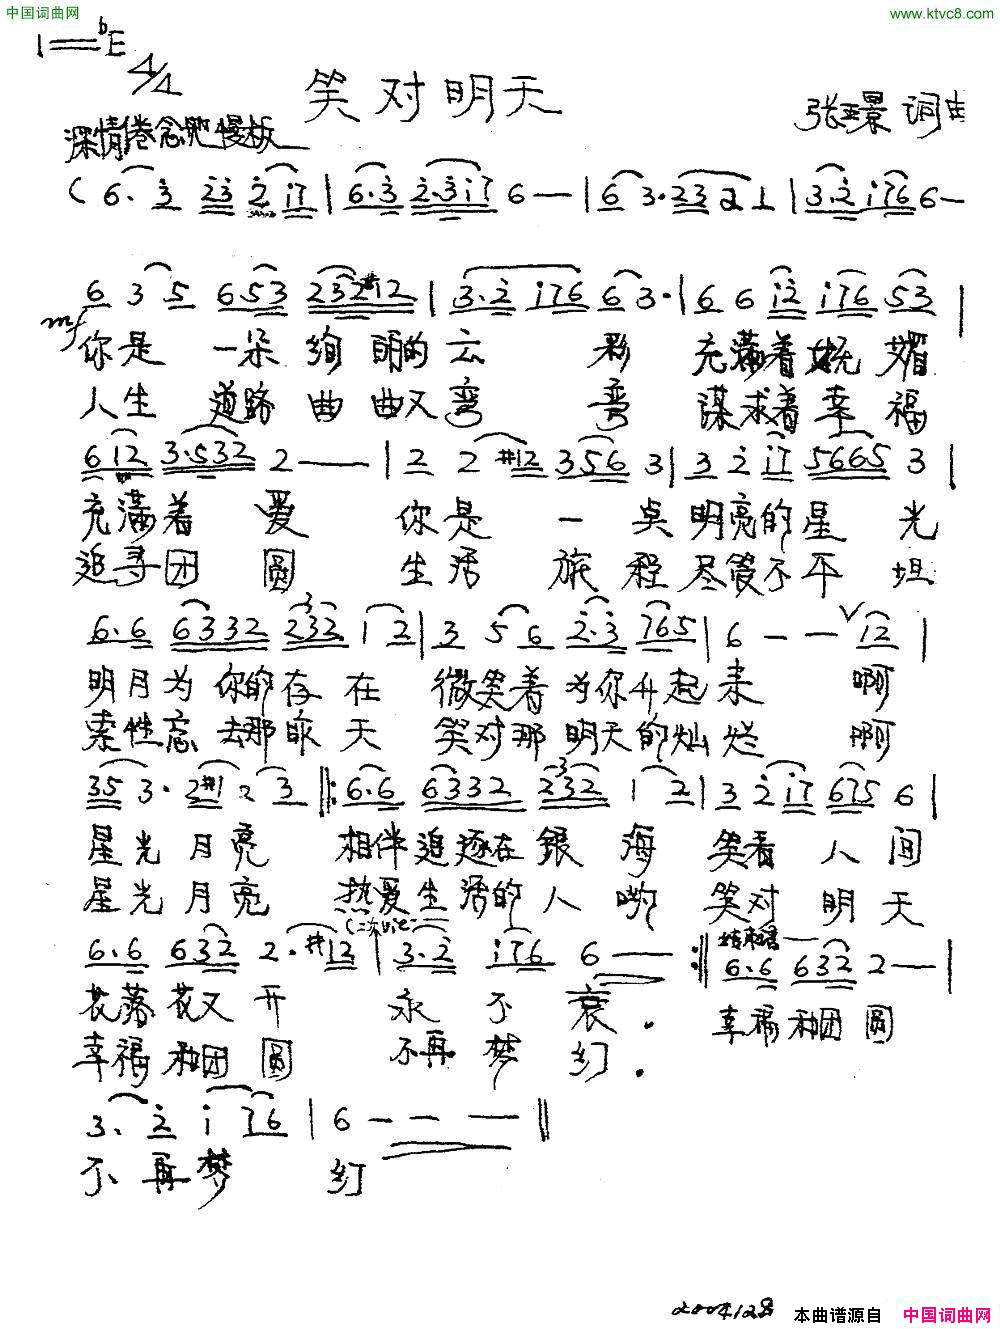 中国词曲网
www.ktvc8.com
1=bE
4/4
笑对明天
张玉景 词曲
深情倦念地 慢板
(6. 3 23 2 i7 | 6.3 2.3i7 6 — — | 6 3. 23 2 1 | 3.2 i76 6 —
6 3 5 653 232#12 | 3.2 i76 6 3. | 6 6 i2 i76 53 |
mf
你是 一朵绚丽的云 彩 充满着妩媚
人生 道路曲曲又弯 弯 谋求着幸福
6i2 3.532 2 — — | 2 2 #12 356 3 | 3 2 i7 5665 3 |
充满着 爱 你是 一点明亮的星 光
追寻团 圆 生活 旅程尽管不平 坦
6.6 6332 232 1 2 | 3 5 6 2.3 765 | 6 — — 12 |
明月为你的存在 微笑着为你升起来 啊
索性忘去那昨天 笑对那明天的灿烂 啊
35 3. 2#1. 2 3 ‖: 6.6 6332 232 1 2 | 3 2 i7 675 6 |
星光月亮 相伴追逐在银海 笑看人间
星光月亮 热爱生活的人哟 笑对明天
结束句
6.6 632 2. #12 | 3.2 i76 6 — — :‖ 6.6 632 2 — — |
花落花又开 永不衰. 幸福和团圆
幸福和团圆 不再梦幻.
3. 2 i 76 | 6 — — — ‖
不再梦 幻
本曲谱源自 中国词曲网